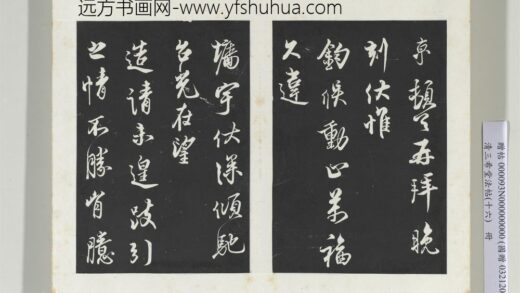 远方书画网- www.yfshuhua.com
京頓首再拜晚
刻伏惟
鈞候動止萬福
久違
墻宇伏深傾馳
台光在望
造請未遑跂引
之情不勝胷臆
贈帖 000093N000000000
清三希堂法帖(十六) 冊